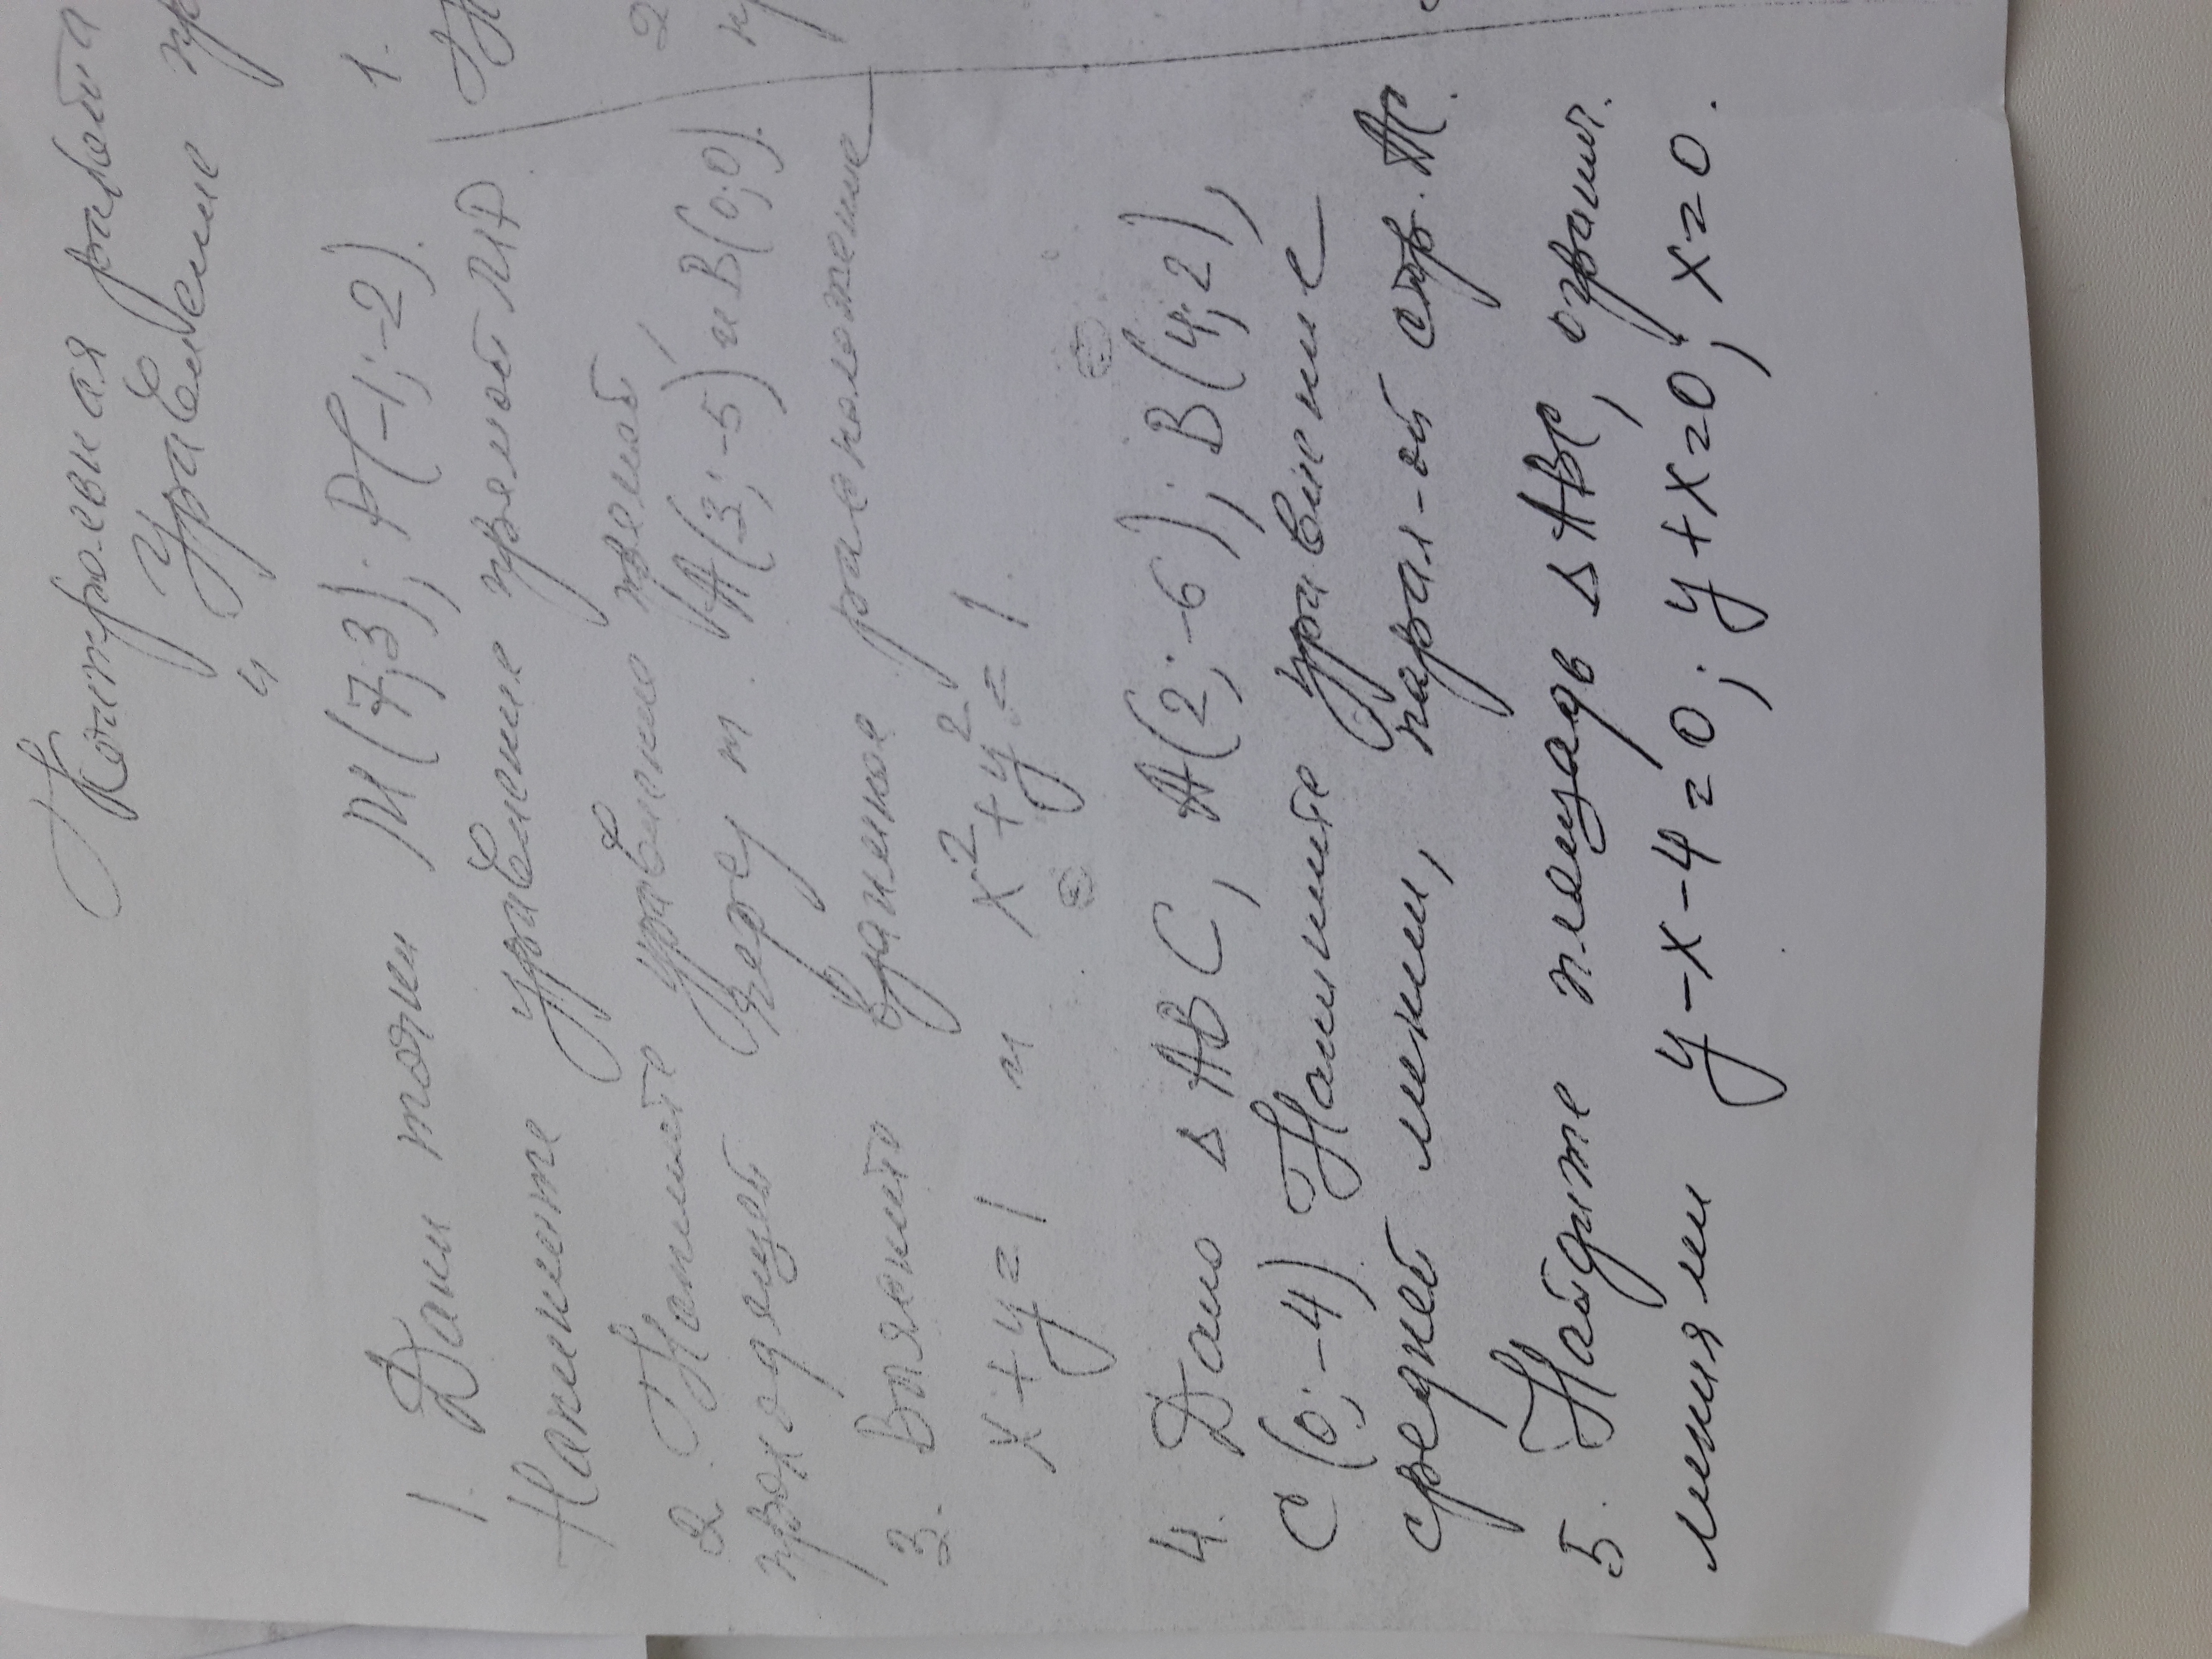 Контрольная работа
" Уравнение пр
1. Даны точки М(7;3); Р(-1;-2).
Напишите уравнение прямой МР
2. Напишите уравнение прямой,
проходящей через т. А(3;-5) и В(0;0).
3. Выяснить взаимное расположение
x+y=1 и x²+y²=1.
4. Дано ΔАВС, А(2;-6); В(4;2),
С(0;-4) Напишите уравнение
средней линии, парал-ой стор. АС.
5. Найдите площадь ΔАВС, огранич.
линиями y-x-4=0; y+x=0; x=0.
1.
2